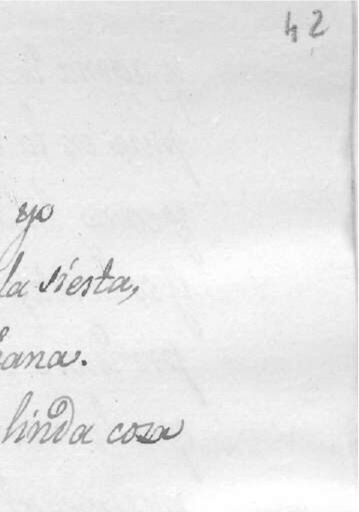 42
yo
la siesta,
ana.
linda coza